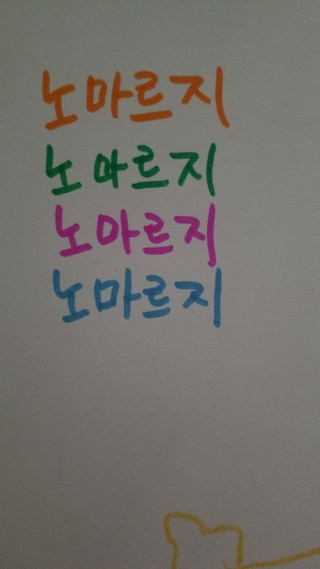 노마르지
노마르지
노마르지
노마르지